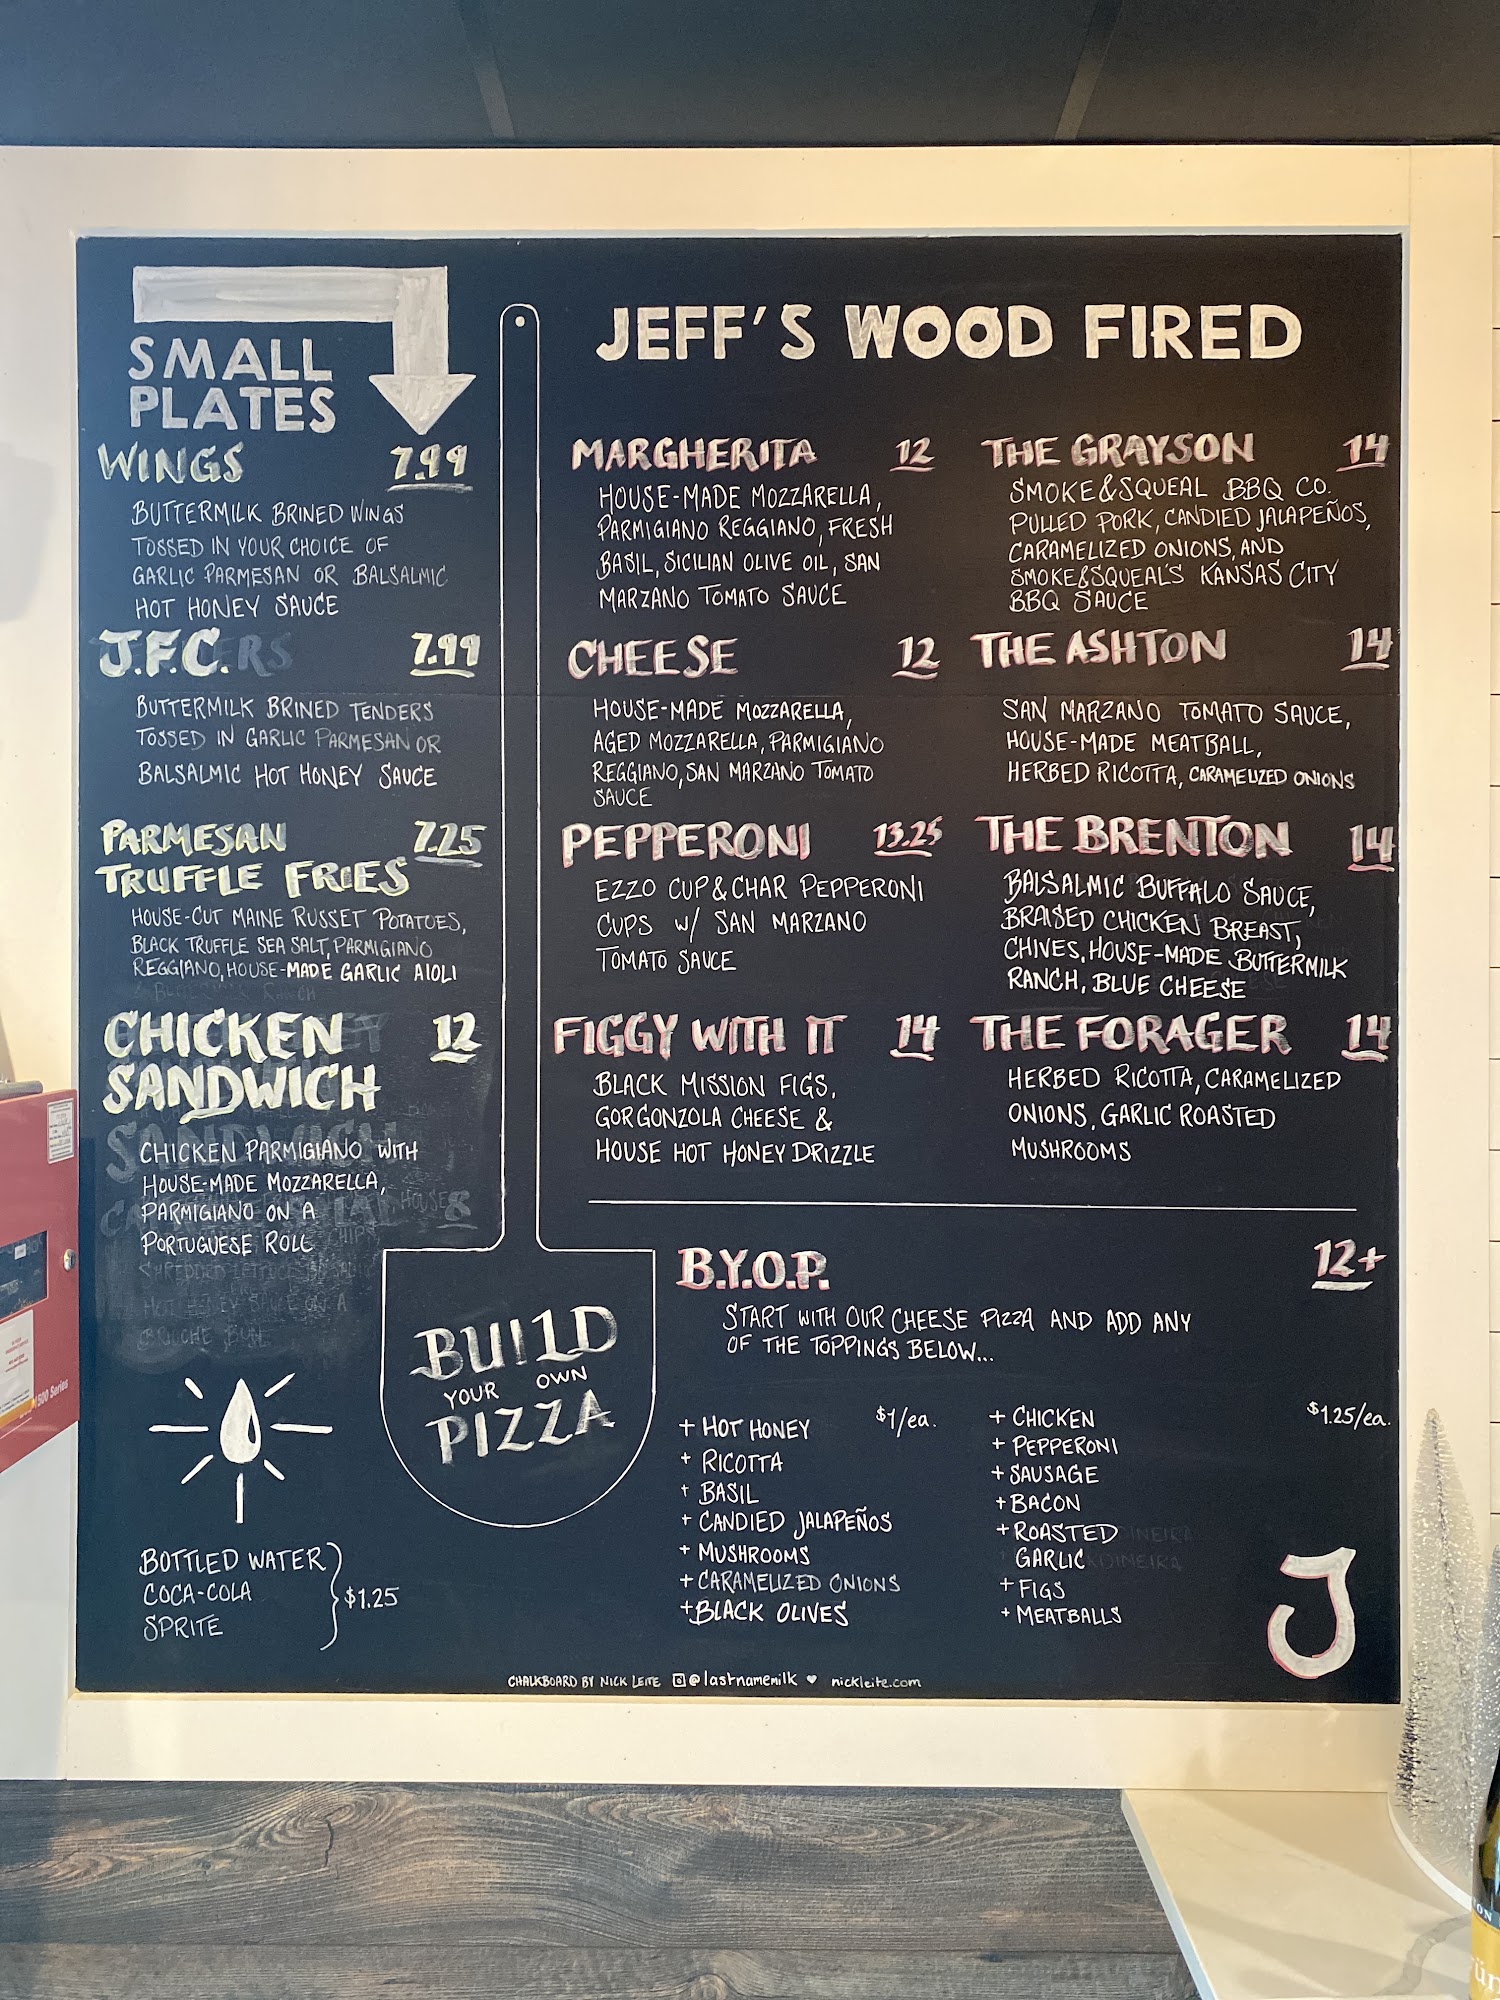 SMALL
PLATES
WINGS 7.99
BUTTERMILK BRINED WINGS
TOSSED IN YOUR CHOICE OF
GARLIC PARMESAN OR BALSALMIC
HOT HONEY SAUCE
J.F.C. 7.99
BUTTERMILK BRINED TENDERS
TOSSED IN GARLIC PARMESAN OR
BALSALMIC HOT HONEY SAUCE
PARMESAN 7.25
TRUFFLE FRIES
HOUSE-CUT MAINE RUSSET POTATOES,
BLACK TRUFFLE SEA SALT, PARMIGIANO
REGGIANO, HOUSE-MADE GARLIC AIOLI
CHICKEN 12
SANDWICH
CHICKEN PARMIGIANO WITH
HOUSE-MADE MOZZARELLA,
PARMIGIANO ON A
PORTUGUESE ROLL
BOTTLED WATER
COCA-COLA $1.25
SPRITE
BUILD
YOUR OWN
PIZZA
JEFF'S WOOD FIRED
MARGHERITA 12
HOUSE-MADE MOZZARELLA,
PARMIGIANO REGGIANO, FRESH
BASIL, SICILIAN OLIVE OIL, SAN
MARZANO TOMATO SAUCE
CHEESE 12
HOUSE-MADE MOZZARELLA,
AGED MOZZARELLA, PARMIGIANO
REGGIANO, SAN MARZANO TOMATO
SAUCE
PEPPERONI 13.25
EZZO CUP & CHAR PEPPERONI
CUPS W/ SAN MARZANO
TOMATO SAUCE
FIGGY WITH IT 14
BLACK MISSION FIGS,
GORGONZOLA CHEESE &
HOUSE HOT HONEY DRIZZLE
THE GRAYSON 14
SMOKE&SQUEAL BBQ CO.
PULLED PORK, CANDIED JALAPEÑOS,
CARAMELIZED ONIONS, AND
SMOKE&SQUEAL'S KANSAS CITY
BBQ SAUCE
THE ASHTON 14
SAN MARZANO TOMATO SAUCE,
HOUSE-MADE MEATBALL,
HERBED RICOTTA, CARAMELIZED ONIONS
THE BRENTON 14
BALSALMIC BUFFALO SAUCE,
BRAISED CHICKEN BREAST,
CHIVES, HOUSE-MADE BUTTERMILK
RANCH, BLUE CHEESE
THE FORAGER 14
HERBED RICOTTA, CARAMELIZED
ONIONS, GARLIC ROASTED
MUSHROOMS
B.Y.O.P. 12+
START WITH OUR CHEESE PIZZA AND ADD ANY
OF THE TOPPINGS BELOW...
+ HOT HONEY $1/ea.
+ RICOTTA
+ BASIL
+ CANDIED JALAPEÑOS
+ MUSHROOMS
+ CARAMELIZED ONIONS
+ BLACK OLIVES
+ CHICKEN $1.25/ea.
+ PEPPERONI
+ SAUSAGE
+ BACON
+ ROASTED
GARLIC
+ FIGS
+ MEATBALLS
J
CHALKBOARD BY NICK LEITE @lastnamemilk ♥ nickleite.com
500 Series